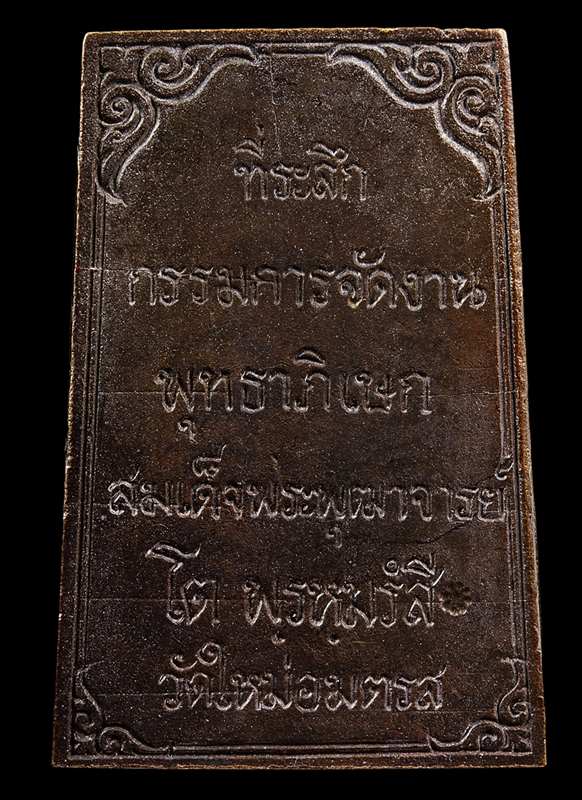 ที่ระลึก
กรรมการจัดงาน
พุทธาภิเษก
สมเด็จพระพุฒาจารย์
โต พฺรหฺมรํสี
วัดใหม่อมตรส